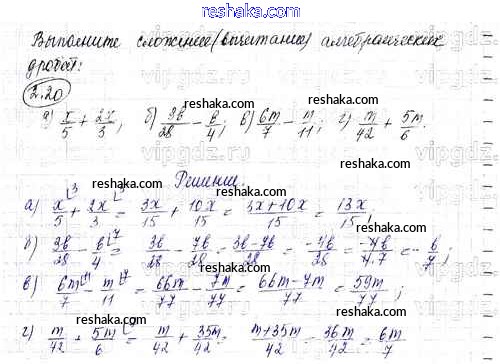 reshaka.com
Выполните сложение (вычитание) алгебраических
дробей:
2.20
reshaka.com
а) x/5 + 2x/3; б) 3b/28 - b/4; в) 6m/7 - m/11; г) m/42 + 5m/6.
reshaka.com
Решение.
reshaka.com
а) x/5 + 2x/3 = 3x/15 + 10x/15 = (3x+10x)/15 = 13x/15;
reshaka.com
б) 3b/28 - b/4 = 3b/28 - 7b/28 = (3b-7b)/28 = -4b/28 = -4b/4·7 = -b/7;
reshaka.com
в) 6m/7 - m/11 = 66m/77 - 7m/77 = (66m-7m)/77 = 59m/77;
reshaka.com
г) m/42 + 5m/6 = m/42 + 35m/42 = (m+35m)/42 = 36m/42 = 6m/7
reshaka.com